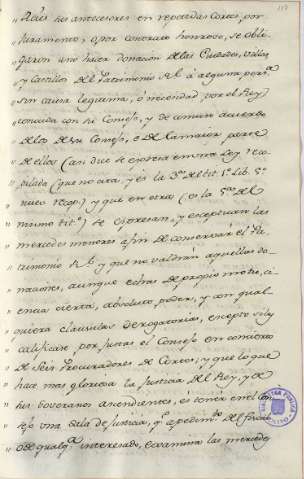 Reales sus antecesores en repetidas Cortes, por
juramento, ó por contrato honroroso, se obli-
garon á no hacer donacion de las Ciudades, Villas
y Castillos del Patrimonio Rl. á alguna persona
sin causa lexitima, ó necesidad por el Rey
conocida con su Consejo, y de comun acuerdo
de los de su Consejo, ó de la maior parte
de ellos (asi que se espresa en una Ley reco-
pilada (que no cita, y és la 3ª del titº 1º Lib. 5º
nueva Recop) y que en otras (es la 5ª del
mismo titº) se espresan, y exceptuan las
mercedes menores á fin de conservar el Pa-
trimonio Rl. y que no valdrán aquellas do-
naciones, aunque echas de propio motu, ci-
encia cierta, absoluto poderio, y con qual-
quiera clausulas derogatorias, excepto si se
calificare por justas el Consejo en concurso
de Seis Procuradores de Cortes, y que lo que
hace mas gloriosa la Justicia del Rey, y de
sus Soberanos ascendientes, es tener en el Con
sejo una Sala de justicia, q. a pedimto. del fiscal
ó de qualqª interesado, examina las mercedes